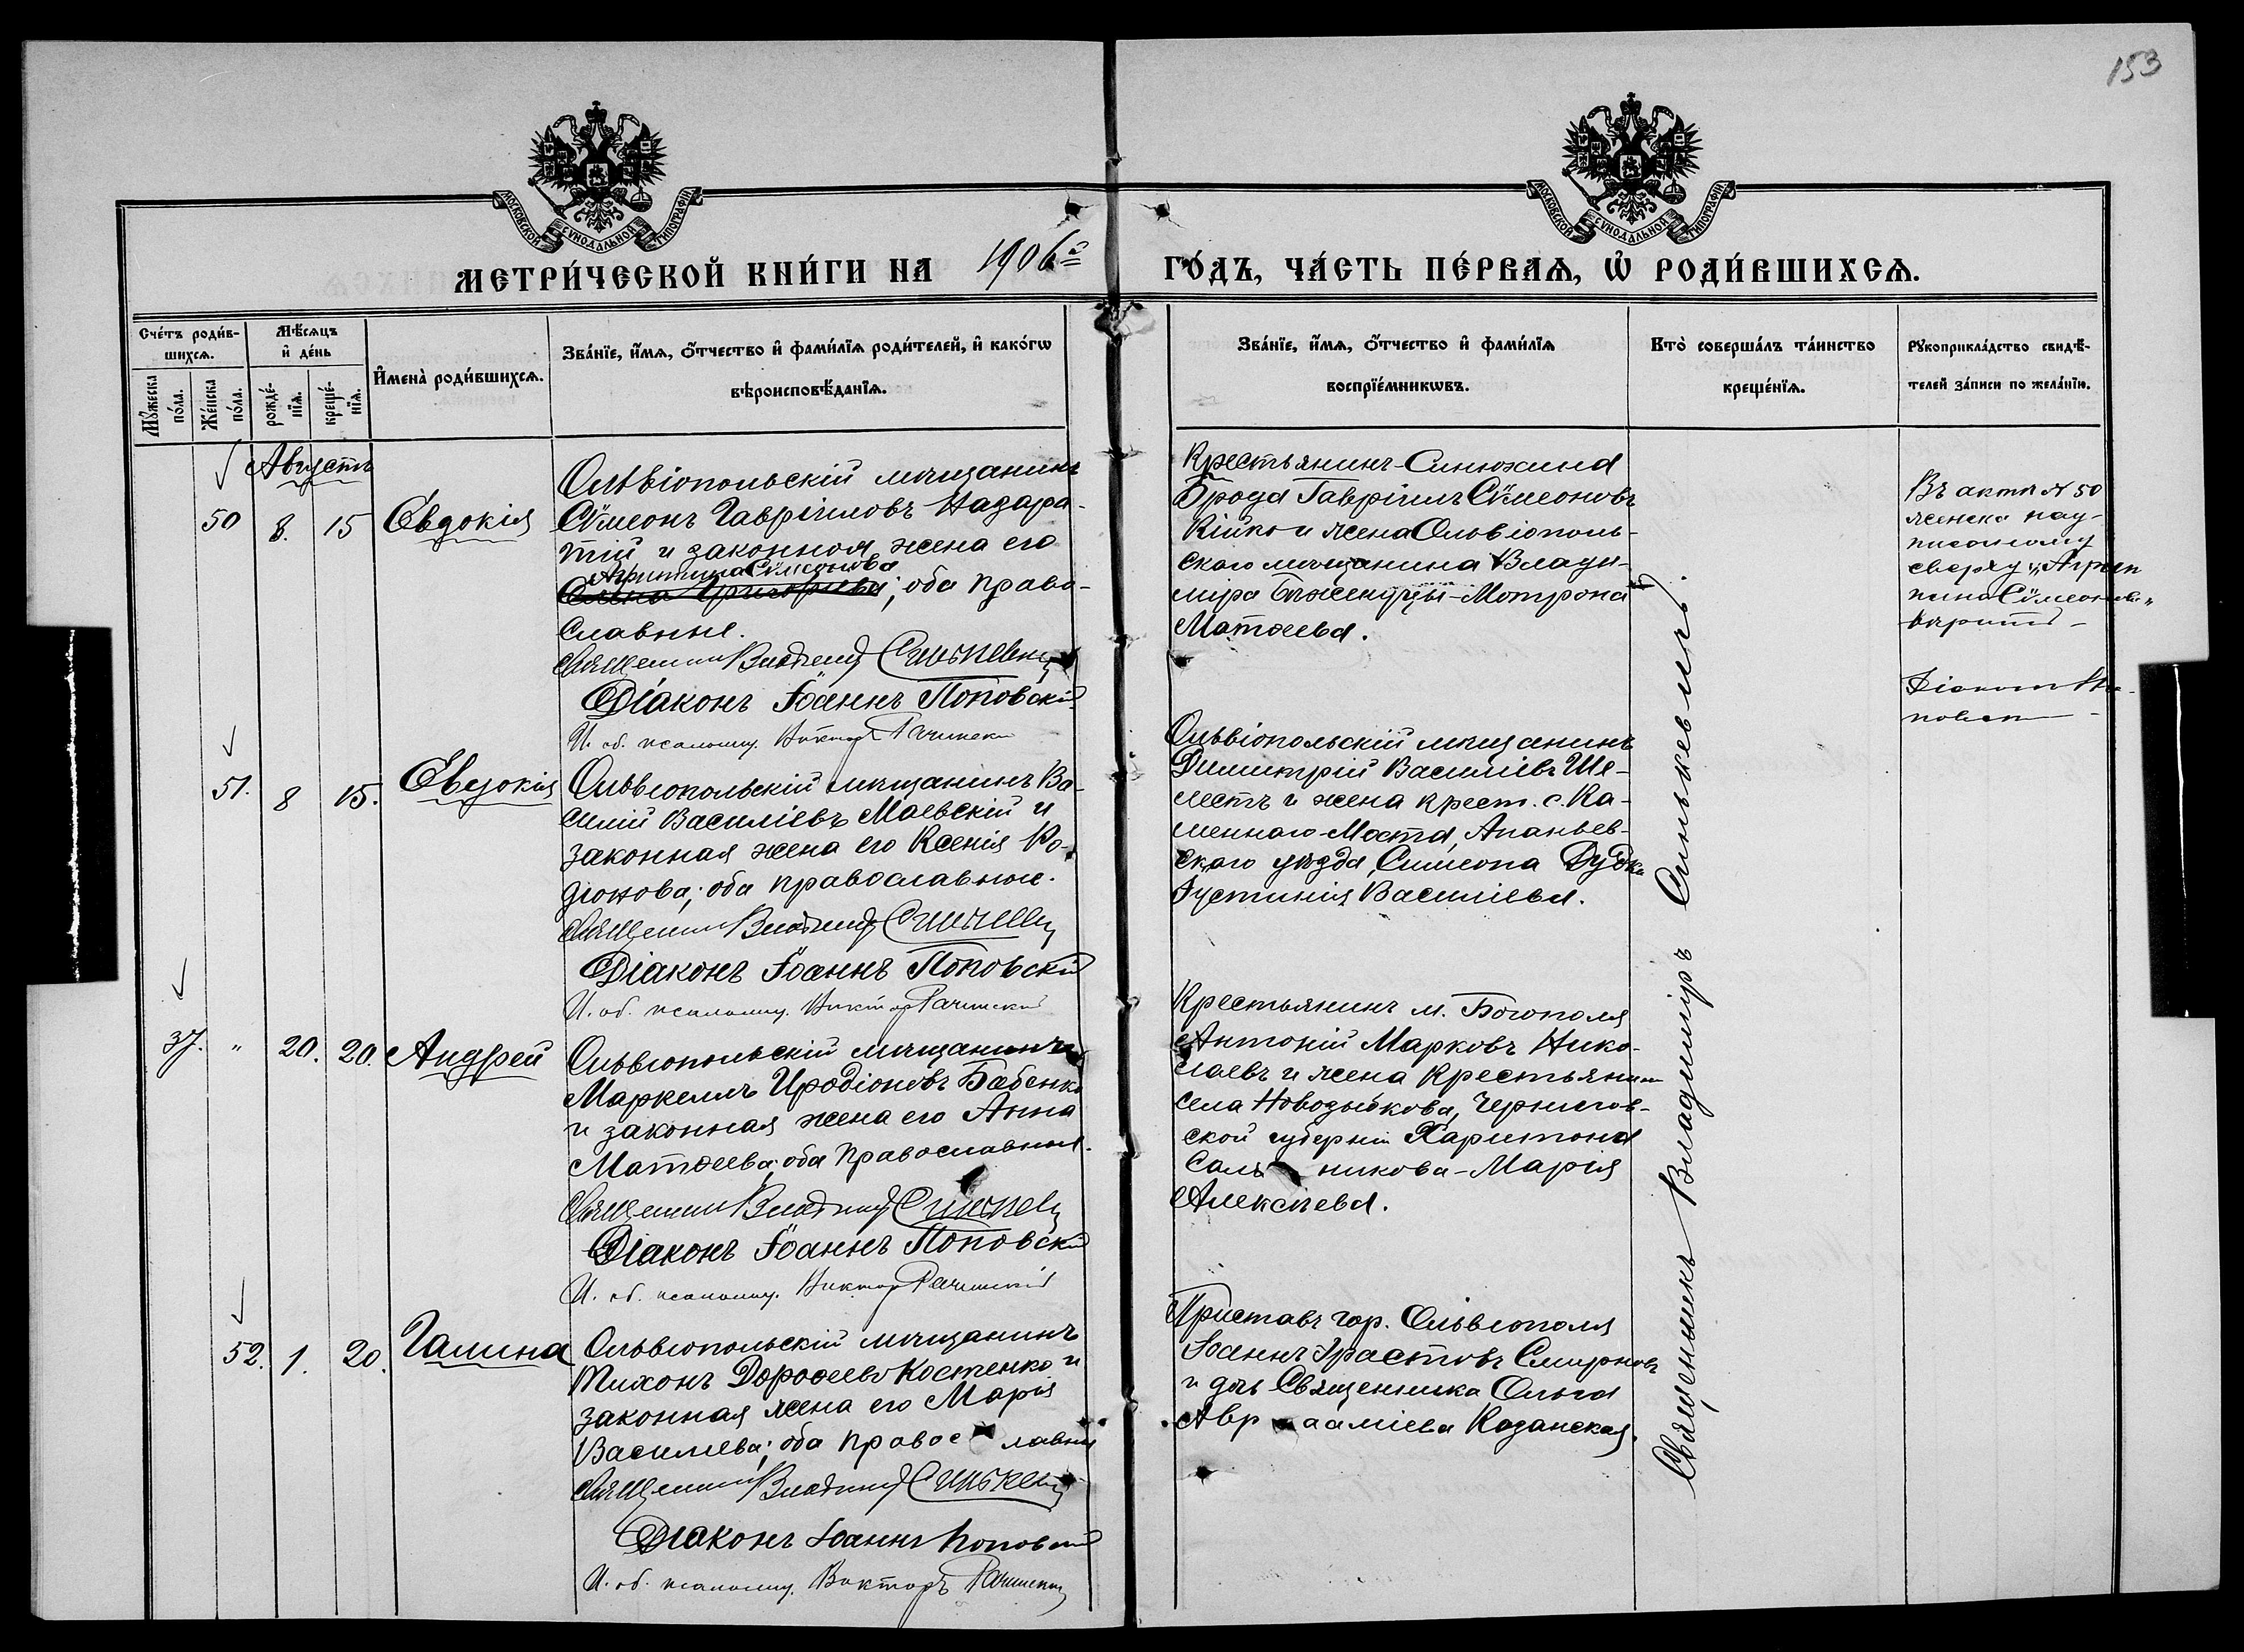 153
МОСКОВСКОЙ СѴНОДАЛЬНОЙ ТИПОГРАФІИ
МОСКОВСКОЙ СѴНОДАЛЬНОЙ ТИПОГРАФІИ
МЕТРИ́ЧЕСКОЙ КНИ́ГИ НА 1906й ГО́ДЪ, ЧА́СТЬ ПЕ́РВАѦ, Ѽ РОДИ́ВШИХСѦ.
Сче́тъ роди́в-
шихсѧ.
Мѣ́сѧцъ
и҆ де́нь
Мꙋ́жеска
по́ла.
Же́нска
по́ла.
рожде́-
нїѧ.
креще́-
нїѧ.
И҆мена̀ роди́вшихсѧ.
Зва́нїе, и҆́мѧ, ѻ҆́тчество и҆ фами́лїѧ роди́телей, и҆ како́гѡ
вѣроисповѣ́данїѧ.
Зва́нїе, и҆́мѧ, ѻ҆́тчество и҆ фами́лїѧ
воспрїе́мникѡвъ.
Кто̀ соверша́лъ та́инство
креще́нїѧ.
Рꙋкоприкла́дство свидѣ́-
телей за́писи по жела́нїю.
Августъ
50 8. 15 Евдокія
Ольвіопольскій мѣщанинъ
Сѵмеонъ Гавріиловъ Назара-
тій и законная жена его
Агриппина Сѵмеонова
Елена Григорьева; оба право-
славные.
Священникъ Владимір Синькевич
Діаконъ Іоаннъ Поповскій
И. об. псаломщ. Викторъ Рачинскій
Крестьянинъ Синюхина
Брода Гавріилъ Сѵмеоновъ
Кійко и жена Ольвіополь-
скаго мѣщанина Влади-
міра Баженцы - Мотрона
Матѳеева.
Въ актѣ № 50
женска над-
писанному
сверху „Агрип
пина Сѵмеонова"
вѣрить -
Діаконъ По-
повскій
51. 8 15. Евдокія
Ольвіопольскій мѣщанинъ Ва-
силій Василіевъ Маевскій и
законная жена его Ксенія Ро-
діонова; оба православные.
Священникъ Владимір Синькевич
Діаконъ Іоаннъ Поповскій
И. об. псаломщ. Викторъ Рачинскій
Ольвіопольскій мѣщанинъ
Димитрій Василіевъ Ше-
лестъ и жена крест. с. Ка-
меннаго-Моста, Ананьев-
скаго уѣзда, Симеона Дудка
Іустинія Василіева.
37. " 20. 20. Андрей
Ольвіопольскій мѣщанинъ
Маркеллъ Иродіоновъ Бабенко
и законная жена его Анна
Матѳеева; оба православные.
Священникъ Владимір Синькевич
Діаконъ Іоаннъ Поповскій
И. об. псаломщ. Викторъ Рачинскій
Крестьянинъ м. Богополя
Антоній Марковъ Нико-
лаевъ и жена крестьянина
села Новозыбкова, Чернигов-
ской губерніи Харитона
Саль никова - Марія
Алексѣева.
52. 1. 20. Галина
Ольвіопольскій мѣщанинъ
Тихонъ Дороѳеевъ Костенко и
законная жена его Марія
Василіева; оба правос лавные
Священникъ Владимір Синькевич
Діаконъ Іоаннъ Поповскій
И. об. псаломщ. Викторъ Рачинскій
Приставъ гор. Ольвіополя
Іоаннъ Ерастовъ Смирновъ
и дочь Священника Ольга
Авр ааміева Казанская.
Священникъ Владиміръ Синькевичъ.